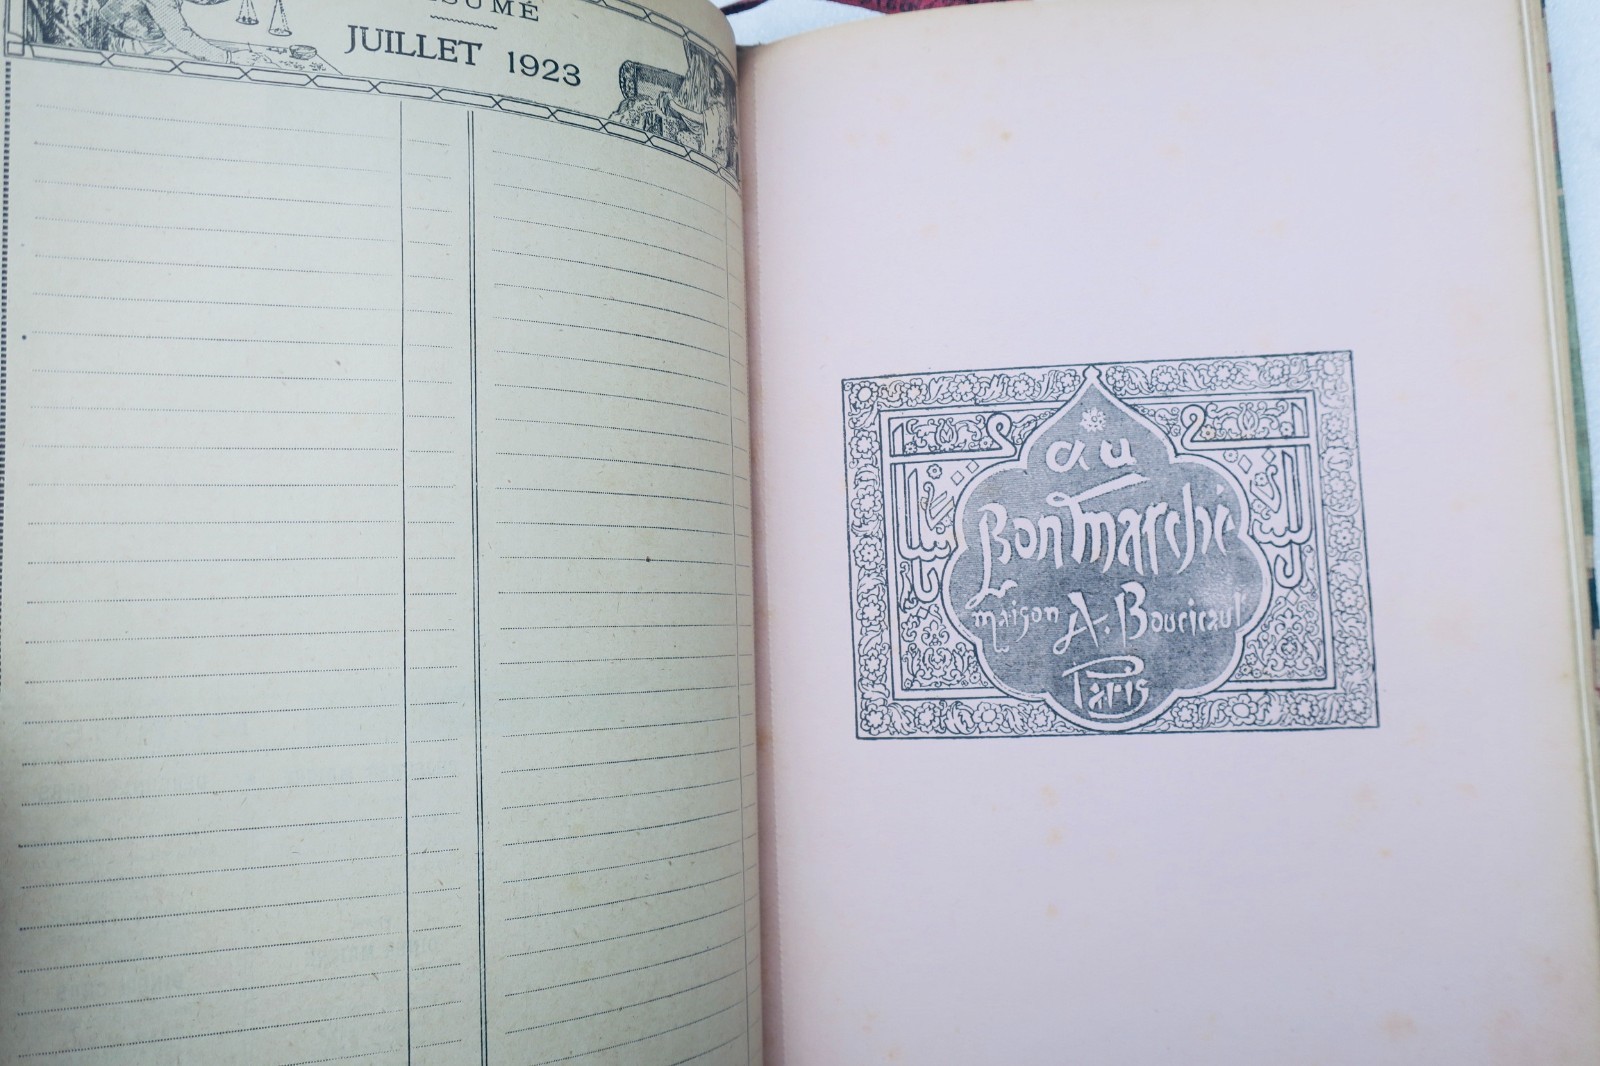 JUILLET 1923
au
Bon Marché
maison A. Boucicaut
Paris